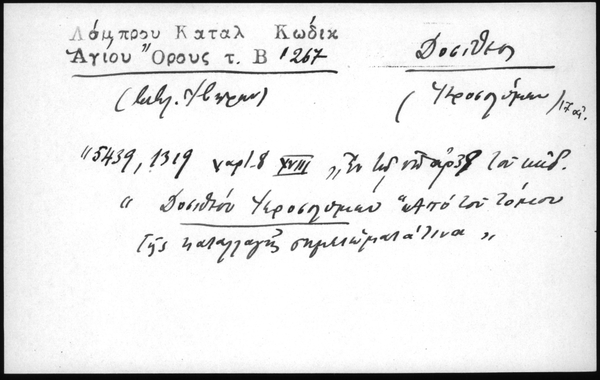 Λάμπρου Καταλ Κώδικ
Ἁγίου Ὄρους τ. Β' 267
Δοσίθεος
(Ἱεροσολύμων /17 αἰ.
"5439, 1319 χαρτ. 8 XVIII „Ἐν τοῦ κώδ.
" Δοσιθέου Ἱεροσολύμων "Ἀπὸ τοῦ τόμου
τῆς καταλλαγῆς σημειώματά τινα „